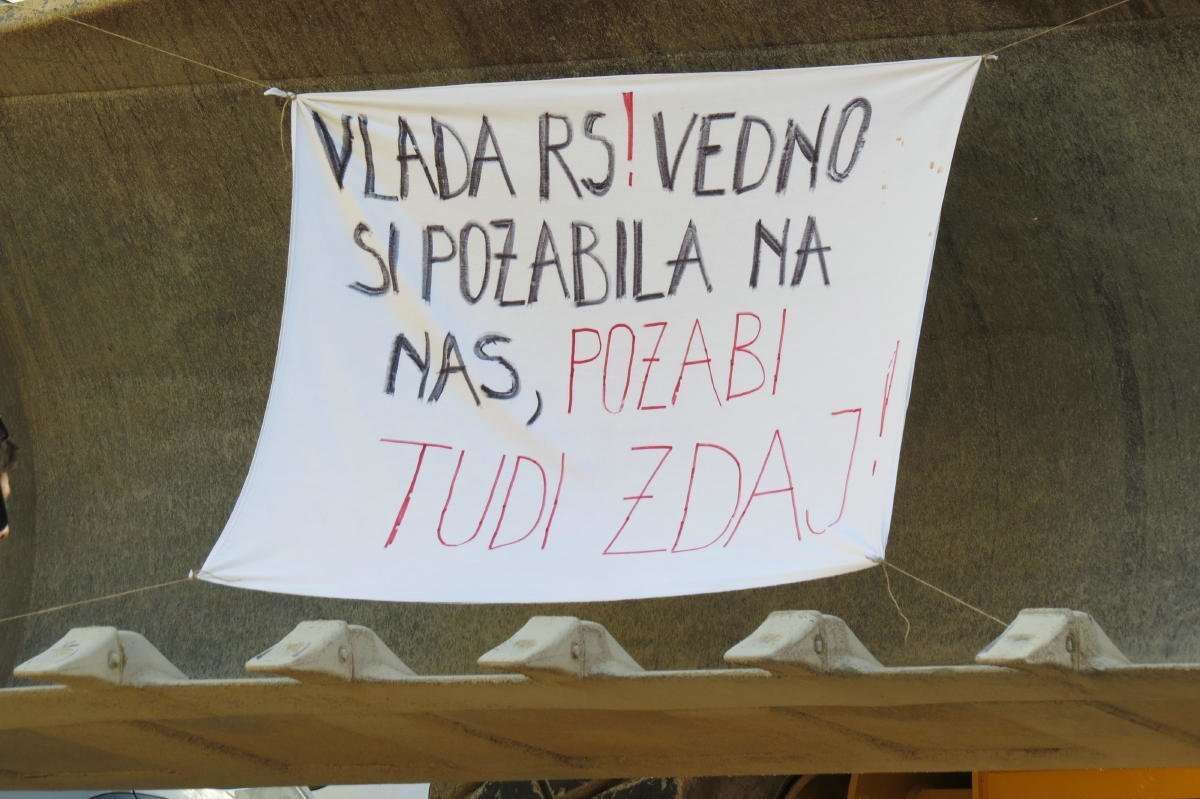 VLADA RS! VEDNO
SI POZABILA NA
NAS, POZABI
TUDI ZDAJ!